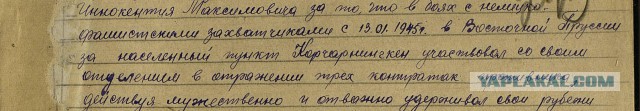 Иннокентия Максимовича за то, что в боях с немецко-
фашистскими захватчиками с 13.01.1945г. в Восточной Пруссии
за населенный пункт Карчарнинкен участвовал со своим
отделением в отражении трех контратак
действуя мужественно и отважно удерживал свои рубежи
YAPLAKAL.COM